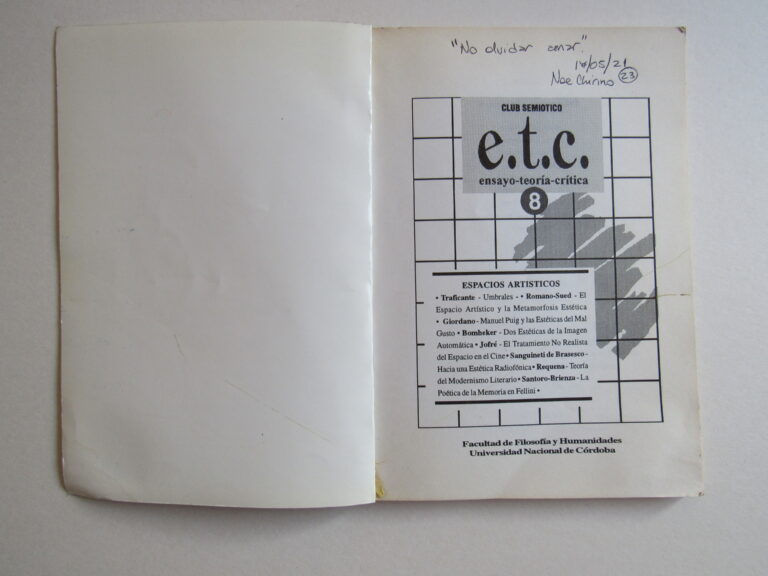 "No olvidar cenar."
/05/21
Noe Chirino 23
CLUB SEMIOTICO
e.t.c.
ensayo-teoría-crítica
8
ESPACIOS ARTISTICOS
• Traficante - Umbrales - • Romano-Sued - El
Espacio Artístico y la Metamorfosis Estética
• Giordano - Manuel Puig y las Estéticas del Mal
Gusto • Bombeker - Dos Estéticas de la Imagen
Automática • Jofré - El Tratamiento No Realista
del Espacio en el Cine • Sanguineti de Brasesco -
Hacia una Estética Radiofónica • Requena - Teoría
del Modernismo Literario • Santoro-Brienza - La
Poética de la Memoria en Fellini •
Facultad de Filosofía y Humanidades
Universidad Nacional de Córdoba